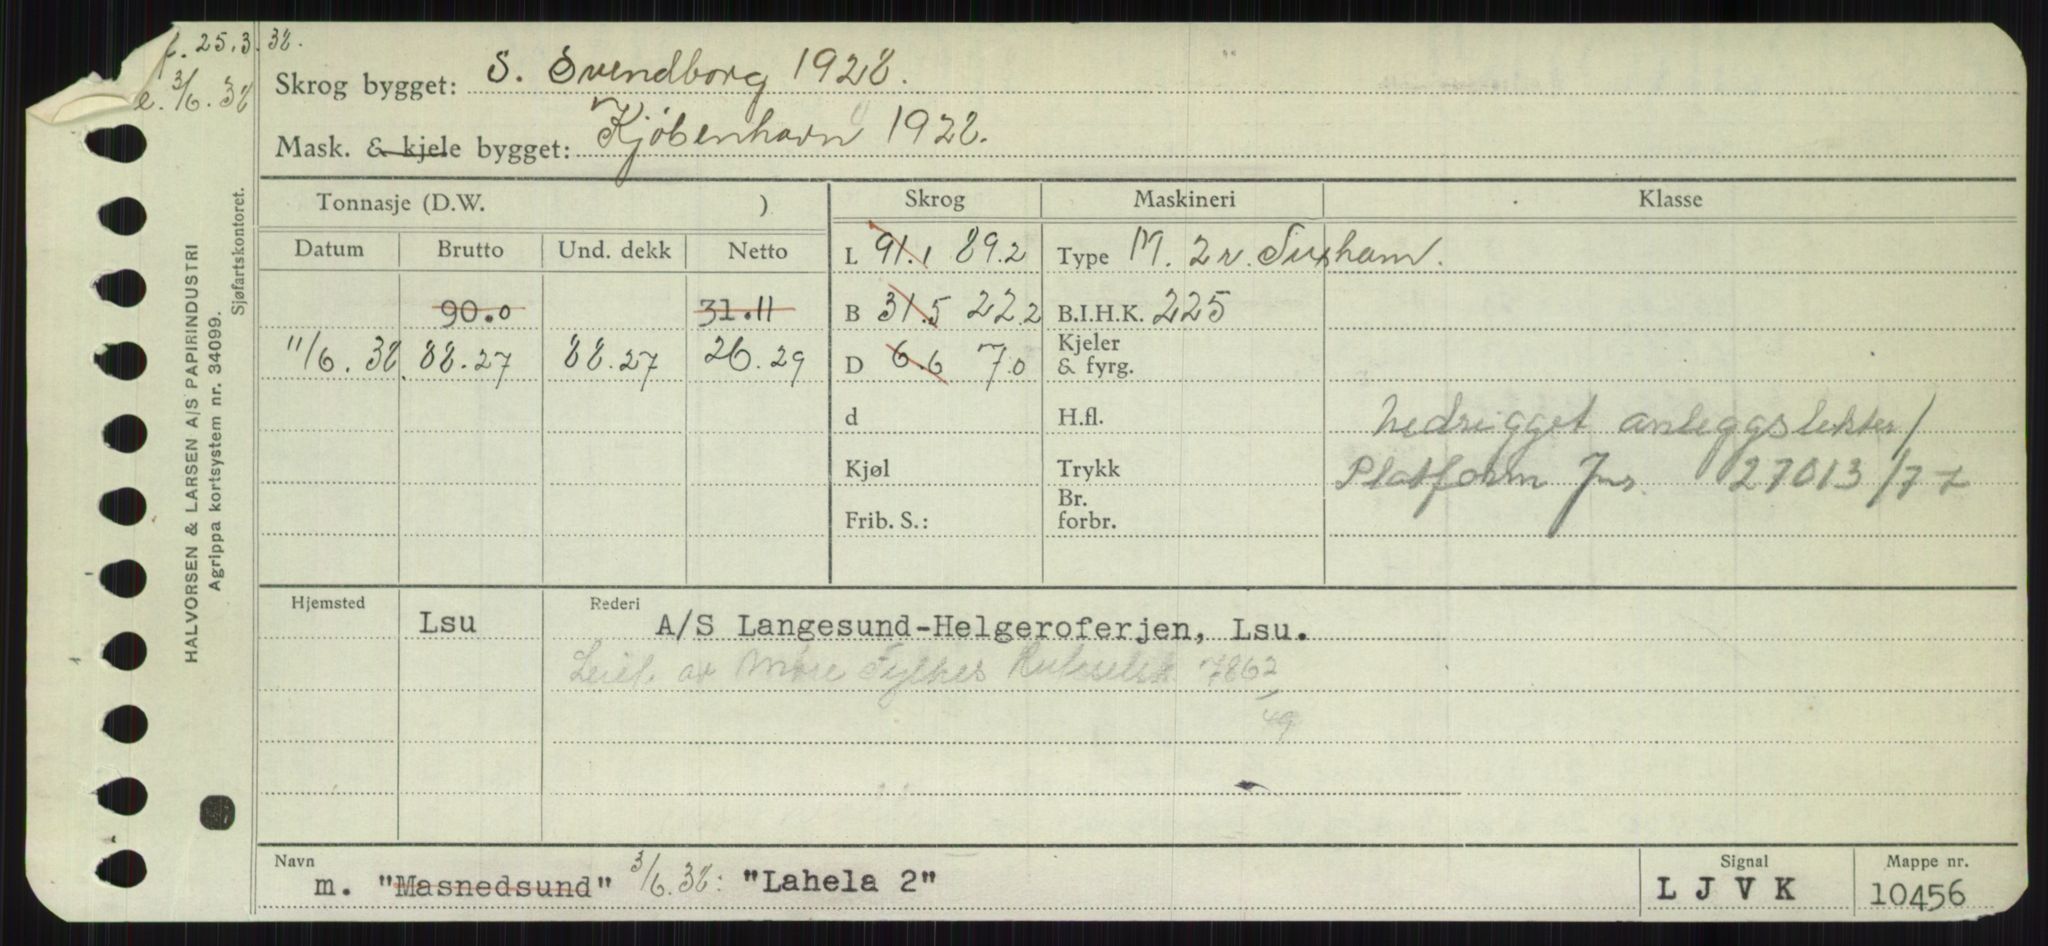 f. 25.3.38.
e. 3/6.38
Skrog bygget: S. Svendborg 1928.
Mask. & kjele bygget: Kjöbenhavn 1928.
Tonnasje (D.W. )
Skrog Maskineri Klasse
Datum Brutto Und. dekk Netto
L 91.1 89.2 Type M. 2 v. Tuxham.
90.0 31.11 B 31.5 22.2 B.I.H.K. 225
11/6.38. 88.27 88.27 26.29 D 6.6 7.0 Kjeler & fyrg.
d H.fl. nedrigget anleggslekter/
Kjøl Trykk Platform Jnr. 27013/77
Frib. S.: Br. forbr.
Hjemsted Rederi
Lsu A/S Langesund-Helgeroferjen, Lsu.
Leiet av Møre Fylkes Ruteselsk 7862/49
Navn Signal Mappe nr.
m. "Masnedsund" 3/6.38: "Lahela 2" L J V K 10456
HALVORSEN & LARSEN A/S PAPIRINDUSTRI
Agrippa kortsystem nr. 34099.
Sjøfartskontoret.